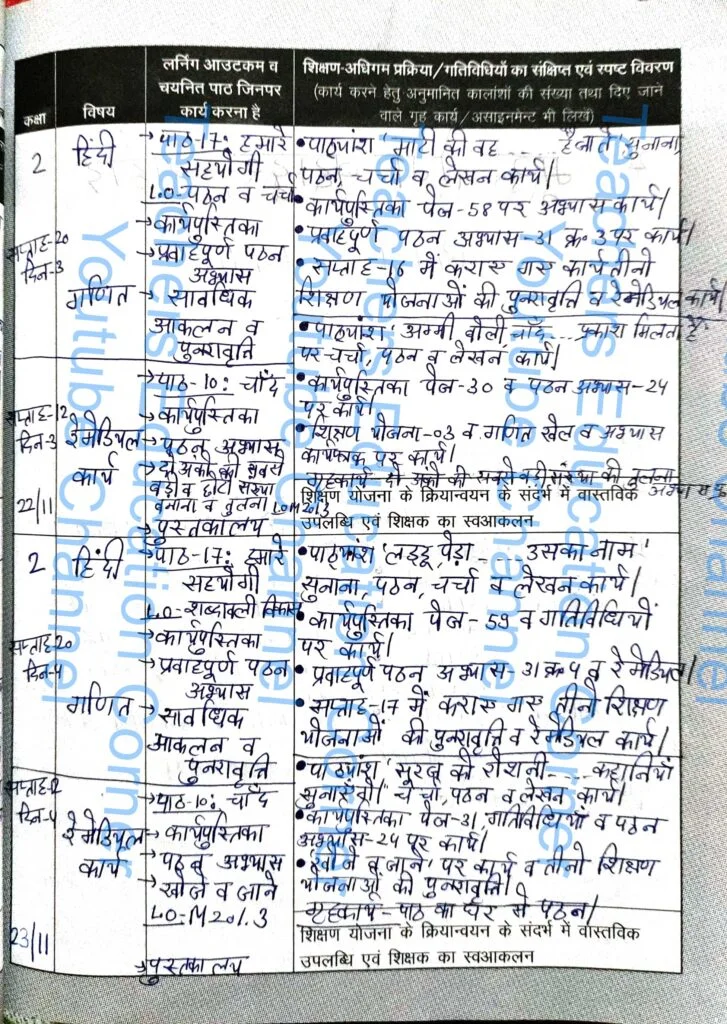 कक्षा
विषय
लर्निंग आउटकम व
चयनित पाठ जिनपर
कार्य करना है
शिक्षण-अधिगम प्रक्रिया/गतिविधियों का संक्षिप्त एवं स्पष्ट विवरण
(कार्य करने हेतु अनुमानित कालांशों की संख्या तथा दिए जाने
वाले गृह कार्य/असाइनमेन्ट भी लिखें)
2
हिंदी
सप्ताह-20
दिन-3
गणित
→ पाठ-17: हमारे
सहयोगी
L.O-पठन व चर्चा
→ कार्यपुस्तिका
→ प्रवाहपूर्ण पठन
अभ्यास
→ सावधिक
आकलन व
पुनरावृत्ति
• पाठ्यांश 'माटी की वह ...... है नाते' सुनाना,
पठन, चर्चा व लेखन कार्य।
• कार्यपुस्तिका पेज-58 पर अभ्यास कार्य।
• प्रवाहपूर्ण पठन अभ्यास-31 क्र० 3 पर कार्य।
• सप्ताह-16 में कराए गए कार्य तीनो
शिक्षण योजनाओं की पुनरावृत्ति व रेमेडियल कार्य।
सप्ताह-12
दिन-3
रेमेडियल
कार्य
22/11
→ पाठ-10: चाँद
→ कार्यपुस्तिका
→ पठन अभ्यास
→ दो अंको की सबसे
बड़ी व छोटी संख्या
बनाना व तुलना L.O M201.3
→ पुस्तकालय
• पाठ्यांश 'अम्मी बोली, चाँद .... प्रकाश मिलता है'
पर चर्चा, पठन व लेखन कार्य।
• कार्यपुस्तिका पेज-30 व पठन अभ्यास-24
पर कार्य।
• शिक्षण योजना-03 व गणित खेल व अभ्यास
कार्यपत्रक पर कार्य।
गृहकार्य- दो अंको की सबसे बड़ी संख्या की तुलना
अभ्यास
शिक्षण योजना के क्रियान्वयन के संदर्भ में वास्तविक
उपलब्धि एवं शिक्षक का स्वआकलन
2
हिंदी
सप्ताह-20
दिन-4
गणित
→ पाठ-17: हमारे
सहयोगी
L.O-शब्दावली विकास
→ कार्यपुस्तिका
→ प्रवाहपूर्ण पठन
अभ्यास
→ सावधिक
आकलन व
पुनरावृत्ति
• पाठ्यांश 'लड्डू, पेड़ा ...... उसका नाम'
सुनाना, पठन, चर्चा व लेखन कार्य।
• कार्यपुस्तिका पेज-59 व गतिविधियों
पर कार्य।
• प्रवाहपूर्ण पठन अभ्यास-31 क्र० 4 व रेमेडियल।
• सप्ताह-17 में कराए गए तीनो शिक्षण
योजनाओं की पुनरावृत्ति व रेमेडियल कार्य।
सप्ताह-12
दिन-4
रेमेडियल
कार्य
23/11
→ पाठ-10: चाँद
→ कार्यपुस्तिका
→ पठन अभ्यास
→ खोजे व जाने
L.O:M201.3
→ पुस्तकालय
• पाठ्यांश 'सूरज की रोशनी .... कहानियाँ
सुनाएँगी।' चर्चा, पठन व लेखन कार्य।
• कार्यपुस्तिका पेज-31, गतिविधियाँ व पठन
अभ्यास-24 पर कार्य।
• 'खोजे व जाने' पर कार्य व तीनो शिक्षण
योजनाओं की पुनरावृत्ति।
गृहकार्य- पाठ का घर से पठन।
शिक्षण योजना के क्रियान्वयन के संदर्भ में वास्तविक
उपलब्धि एवं शिक्षक का स्वआकलन
Teachers Education Corner
Youtube Channel
Teachers Education Corner
Youtube Channel
Teachers Education Corner
Youtube Channel